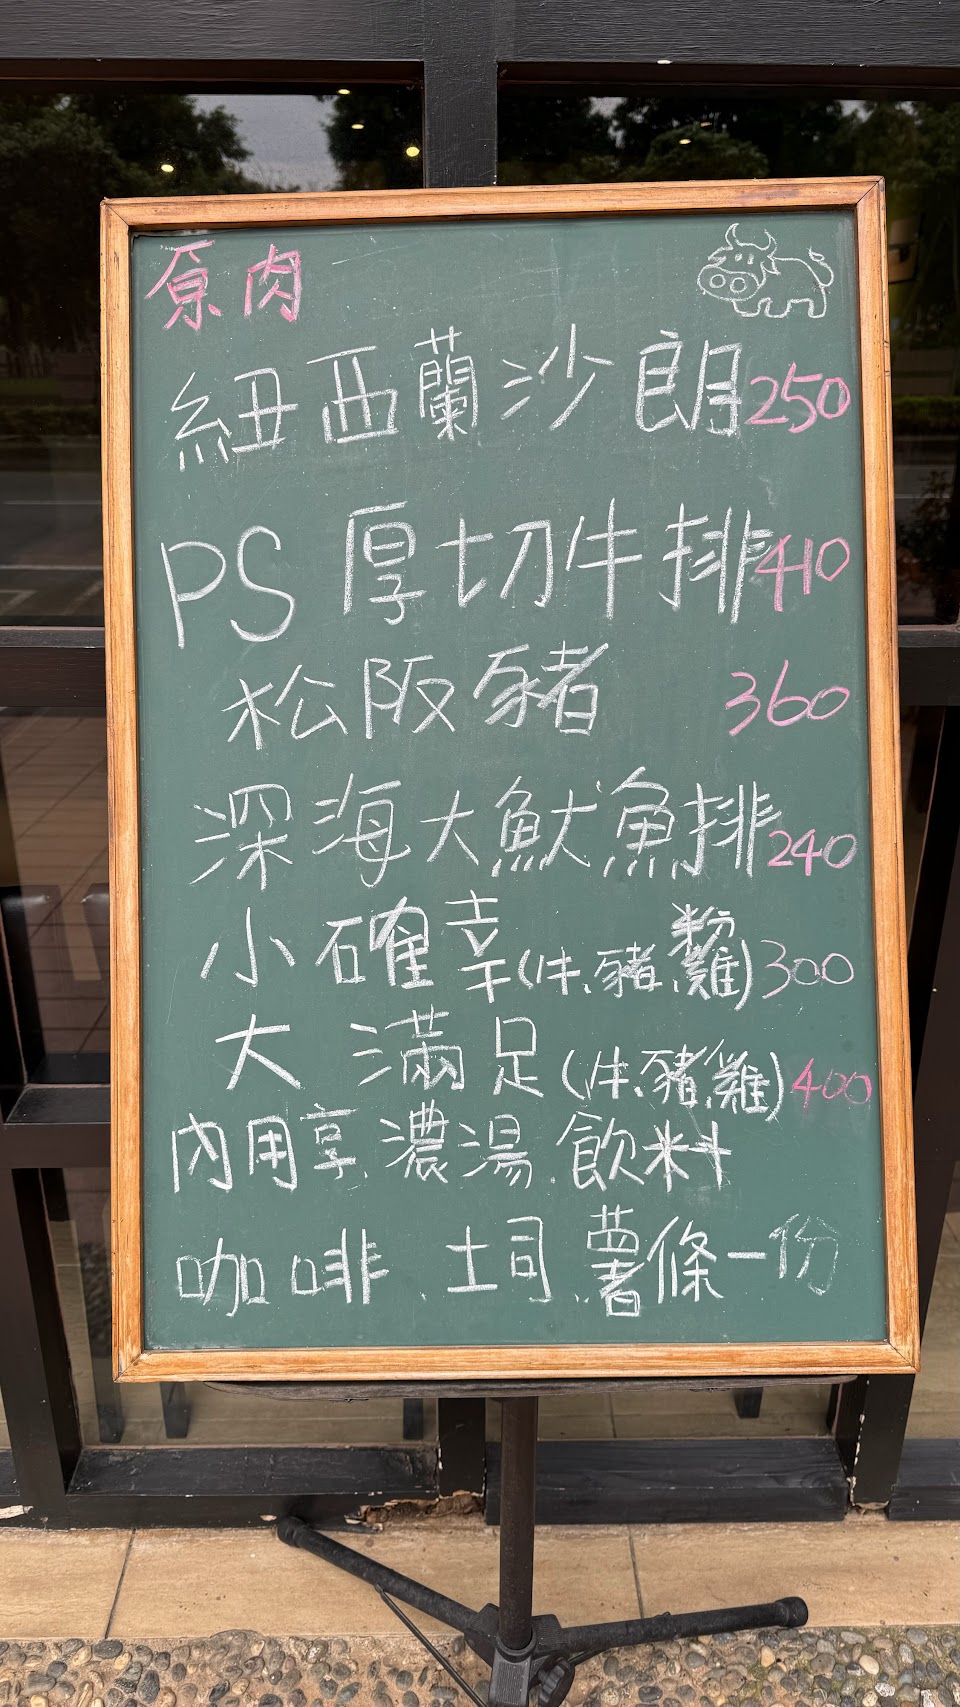 原肉
紐西蘭沙朗250
PS厚切牛排410
松阪豬 360
深海大魷魚排240
小確幸(牛、豬、雞)300
大滿足(牛、豬、雞)400
內用享、濃湯、飲料
咖啡、土司、薯條一份